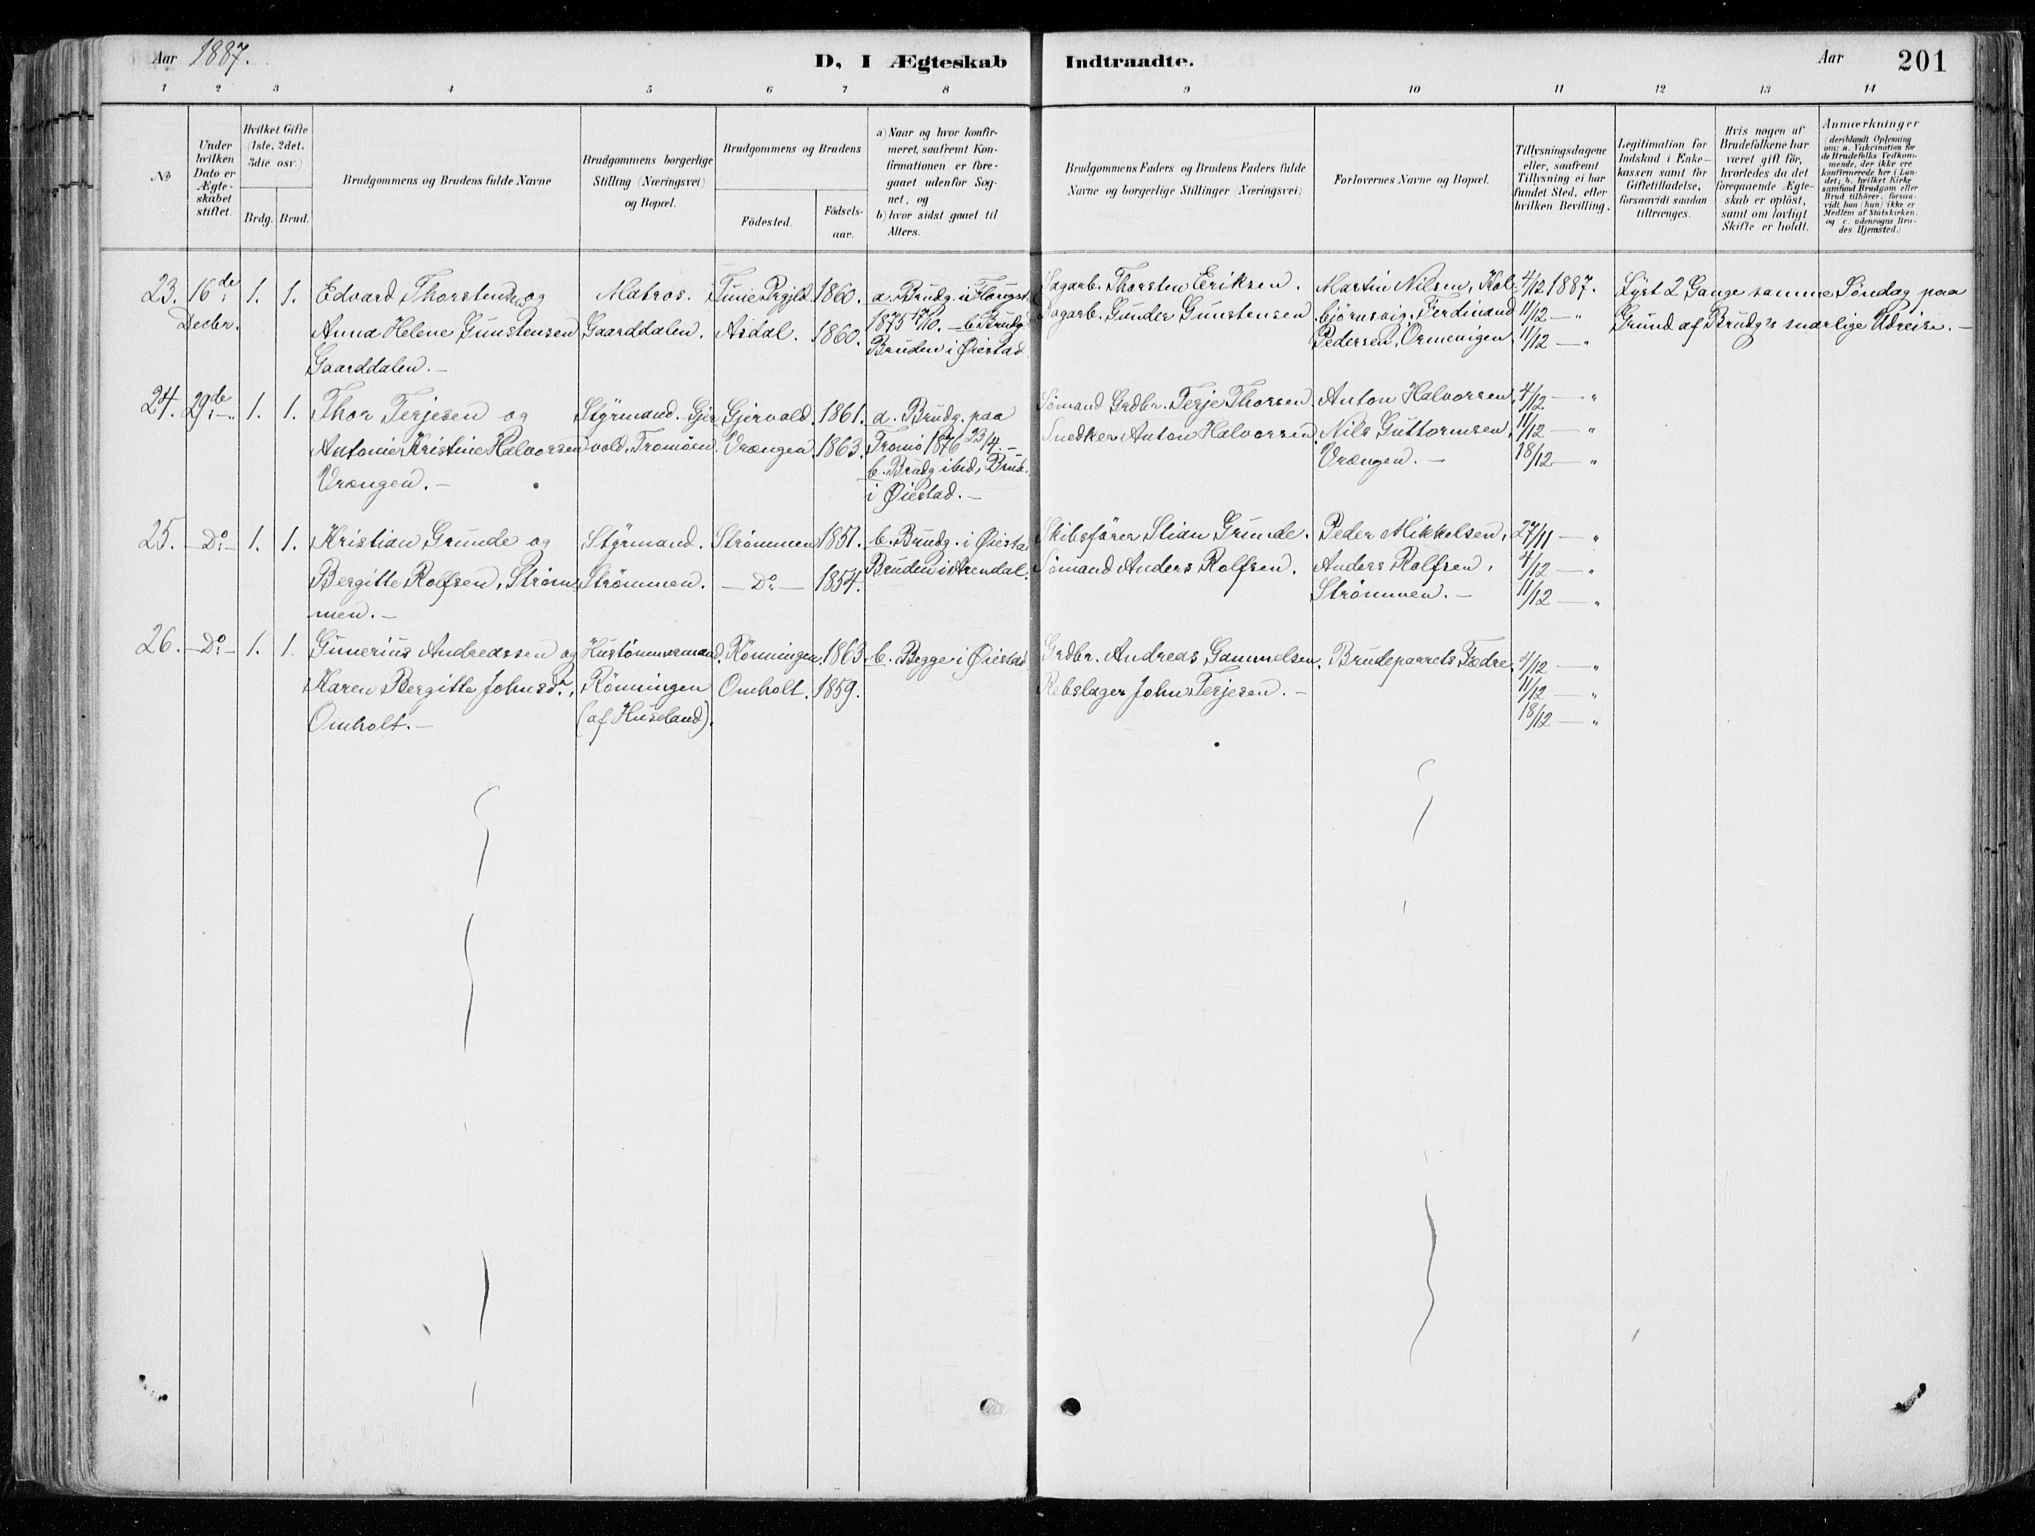 Aar 1887.
D. I Ægteskab Indtraadte.
Aar 201
1 2 3 4 5 6 7 8 9 10 11 12 13 14
No
Under hvilken Dato er Ægteskabet stiftet.
Hvilket Gifte (1ste, 2det. 3die osv.)
Brdg. Brud.
Brudgommens og Brudens fulde Navne
Brudgommens borgerlige Stilling (Næringsvei) og Bopæl.
Brudgommens og Brudens
Födested.
Födsels-aar.
a) Naar og hvor konfir-
meret, saafremt Kon-
firmationen er fore-
gaaet udenfor Sog-
net, og
b) hvor sidst gaaet til
Alters.
Brudgommens Faders og Brudens Faders fulde
Navne og borgerlige Stillinger (Næringsvei)
Forlovernes Navne og Bopæl.
Tillysningsdagene
eller, saafremt
Tillysning ei har
fundet Sted, efter
hvilken Bevilling.
Legitimation for
Indskud i Enke-
kassen samt for
Giftetilladelse,
forsaavidt saadan
tiltrænges.
Hvis nogen af
Brudefolkene har
været gift för,
hvorledes da det
foregaaende Ægte-
skab er oplöst,
samt om lovligt
Skifte er holdt.
Anmærkninger
(deriblandt Oplysning
om: a. Vakcination for
de Brudefolks Vedkom-
mende, der ikke ere
konfirmerede her i Lan-
det; b. hvilket Kirke-
samfund Brudgom eller
Brud tilhörer, forsaa-
vidt han (hun) ikke er
Medlem af Statskirken.
og c. udenrogns Bru-
des Hjemsted.)
23. 16de Decbr. 1. 1.
Edvard Thorstensen og
Anna Helene Gunstensen
Gaarddalen. –
Matros.
Gaarddalen.
Tune Prgjld. 1860.
Asdal. 1860.
a. Brudg. i
1875 – b. Brudg
Bruden i Øiestad
Sagarb. Thorsten Eriksen.
Sagarb. Gunder Gunstensen
Martin Nilsen, Kol-
bjørnsvig. Ferdinand
Pedersen, Ormevigen.
4/12 1887.
11/12 — "
11/12 — "
Lyst 2 Gange samme Søndag paa
Grund af Brudg's snarlige Udreise. –
24. 29de – 1. 1.
Thor Terjesen og
Antonie Kristine Halvorsen
Vrængen. –
Styrmand. Gjer-
vold, Tromøen.
Gjervold. 1861.
Vrængen 1863.
a. Brudg. paa
Tromø 1876 23/4. –
b. Brudg ibid, Brud.
i Øiestad. –
Sømand Grdbr. Terje Thorsen.
Snedker Anton Halvorsen.
Anton Halvorsen,
Nils Guttormsen,
Vrængen. –
4/12 — "
11/12 — "
18/12 — "
25. – Do – 1. 1.
Kristian Grunde og
Bergitte Rolfsen, Strøm-
men. –
Styrmand.
Strömmen.
Strömmen 1851.
– Do – 1854.
b. Brudg. i Øiestad
Bruden i Arendal.
Skibsfører Stian Grunde.
Sømand Anders Rolfsen.
Peder Mikkelsen,
Anders Rolfsen,
Strømmen. –
27/11 — "
4/12 — "
11/12 — "
26. – Do – 1. 1.
Gunerius Andreassen og
Karen Bergitte Johnsdr.,
Omholt. –
Hustømmermand.
Rönningen
(af Huseland).
Rönningen. 1863.
Omholt. 1859.
b. Begge i Øiestad
Grdbr. Andreas Gammelsen.
Rebslager John Terjesen. –
Brudeparrets Fædre
4/12 — "
11/12 — "
18/12 — "